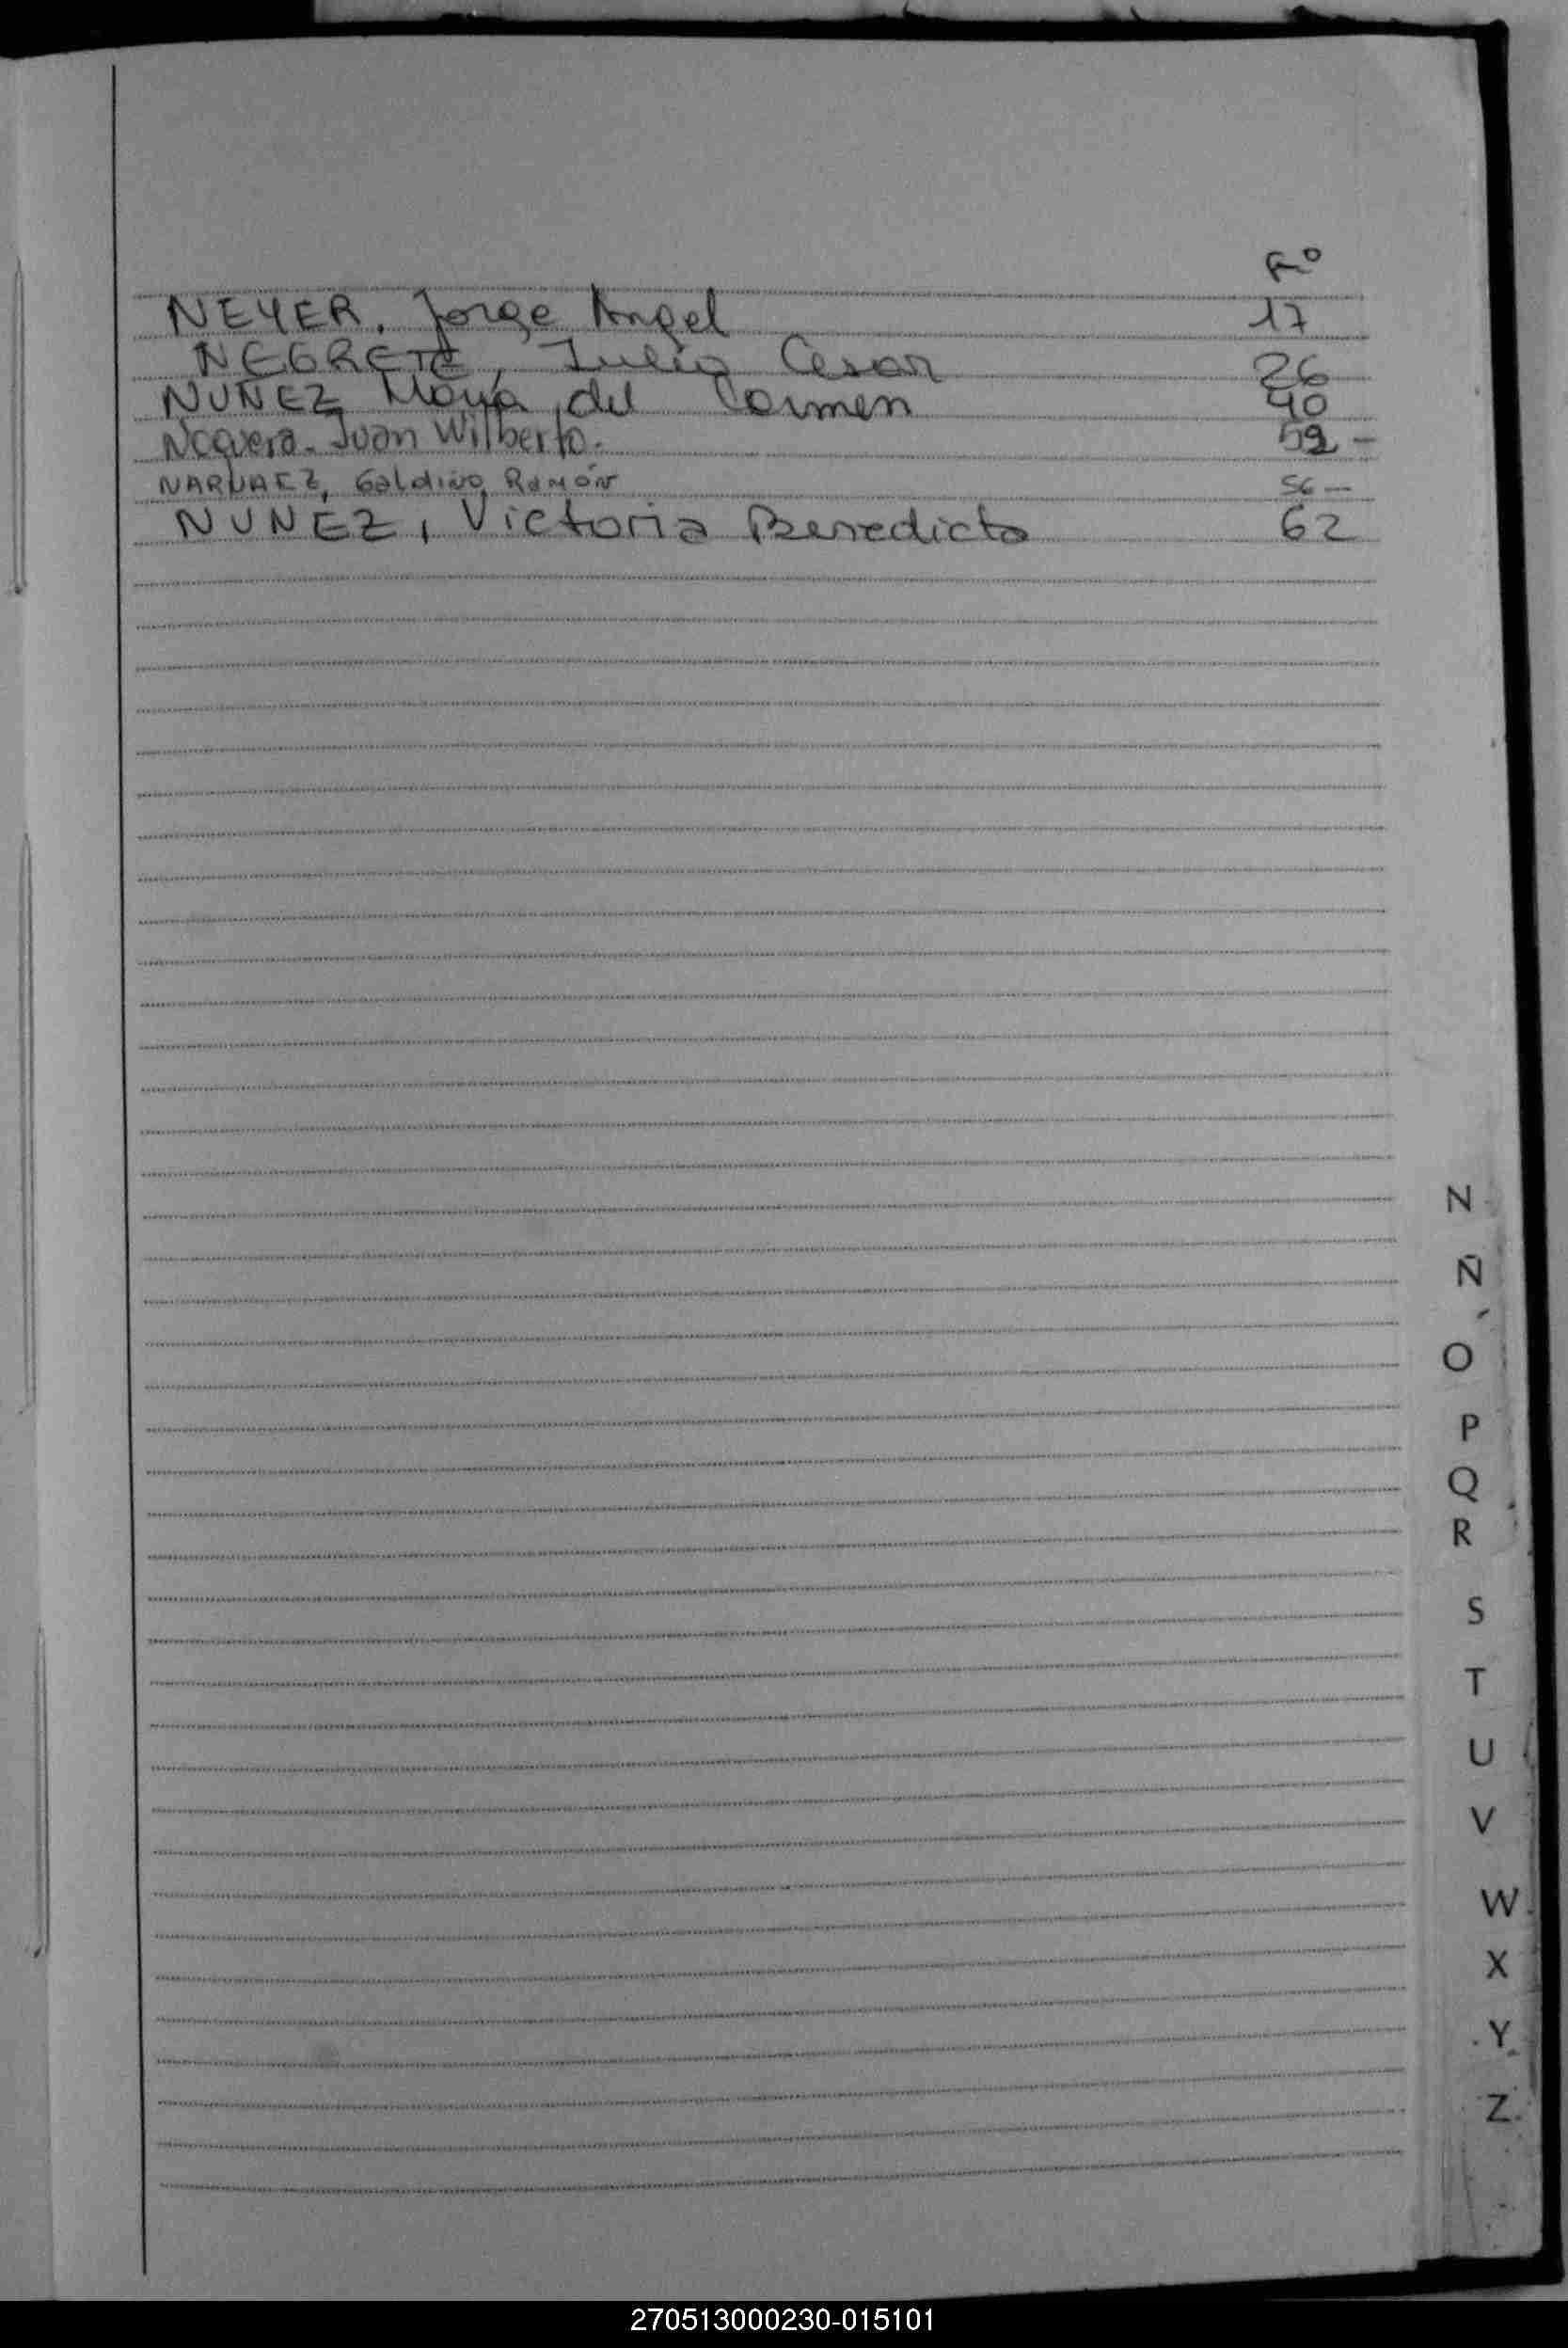 Fº
NEYER, Jorge Angel 17
NEGRETE, Julio Cesar 26
NUÑEZ María del Carmen 40
Noguera. Juan Wilberto.
NARVAEZ, Galdino Ramón 56 —
NUNEZ, Victoria Benedicta 62
N
Ñ
O
P
Q
R
S
T
U
V
W
X
Y
Z
270513000230-015101